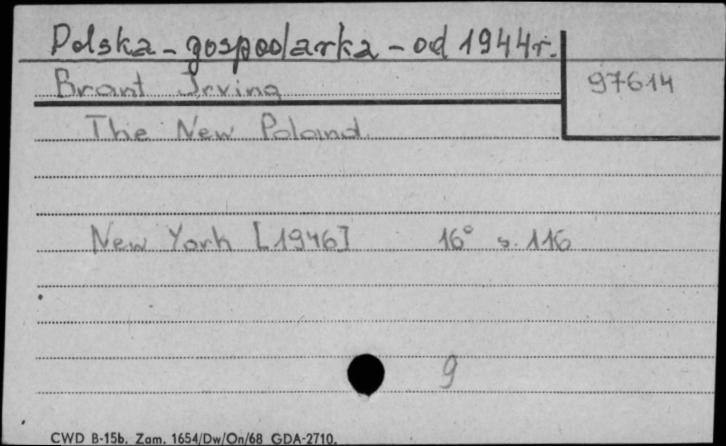 Polska - gospodarka - od 1944 r.
Brant Irving
97614
The New Poland
New York [1946] 16° s. 116
9
CWD B-15b. Zam. 1654/Dw/On/68 GDA-2710.